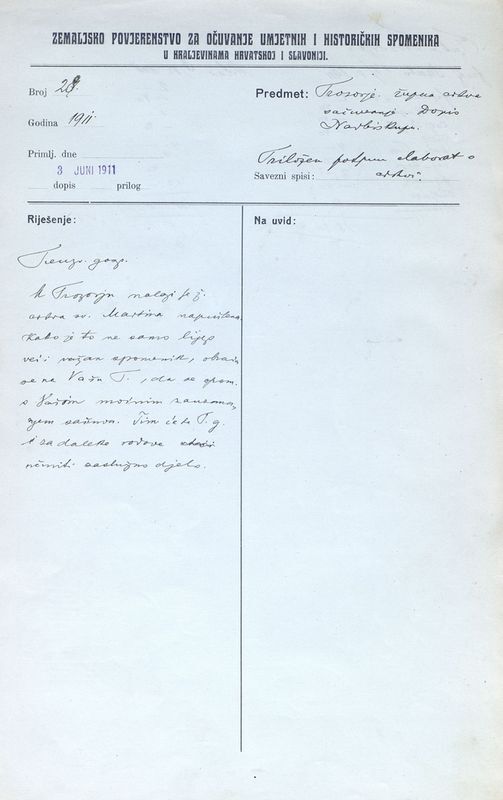 ZEMALJSKO POVJERENSTVO ZA OČUVANJE UMJETNIH I HISTORIČKIH SPOMENIKA
U KRALJEVINAMA HRVATSKOJ I SLAVONIJI.
Broj 28
Godina 1911
Primlj. dne
3 JUNI 1911
dopis prilog
Predmet: župna crkva
Dopis
Nadbiskupu.
Priložen potpun elaborat o
Savezni spisi: crkvi.
Riješenje:
Na uvid:
nalazi se ž.
crkva sv. Martina napuštena.
Kako je to ne samo lijep
već i važan spomenik,
se na Vašu P., da se spom.
s Vašim moćnim zauzima-
njem sačuva. Tim ćete P. g.
i za daleke rodove
učiniti zaslužno djelo.